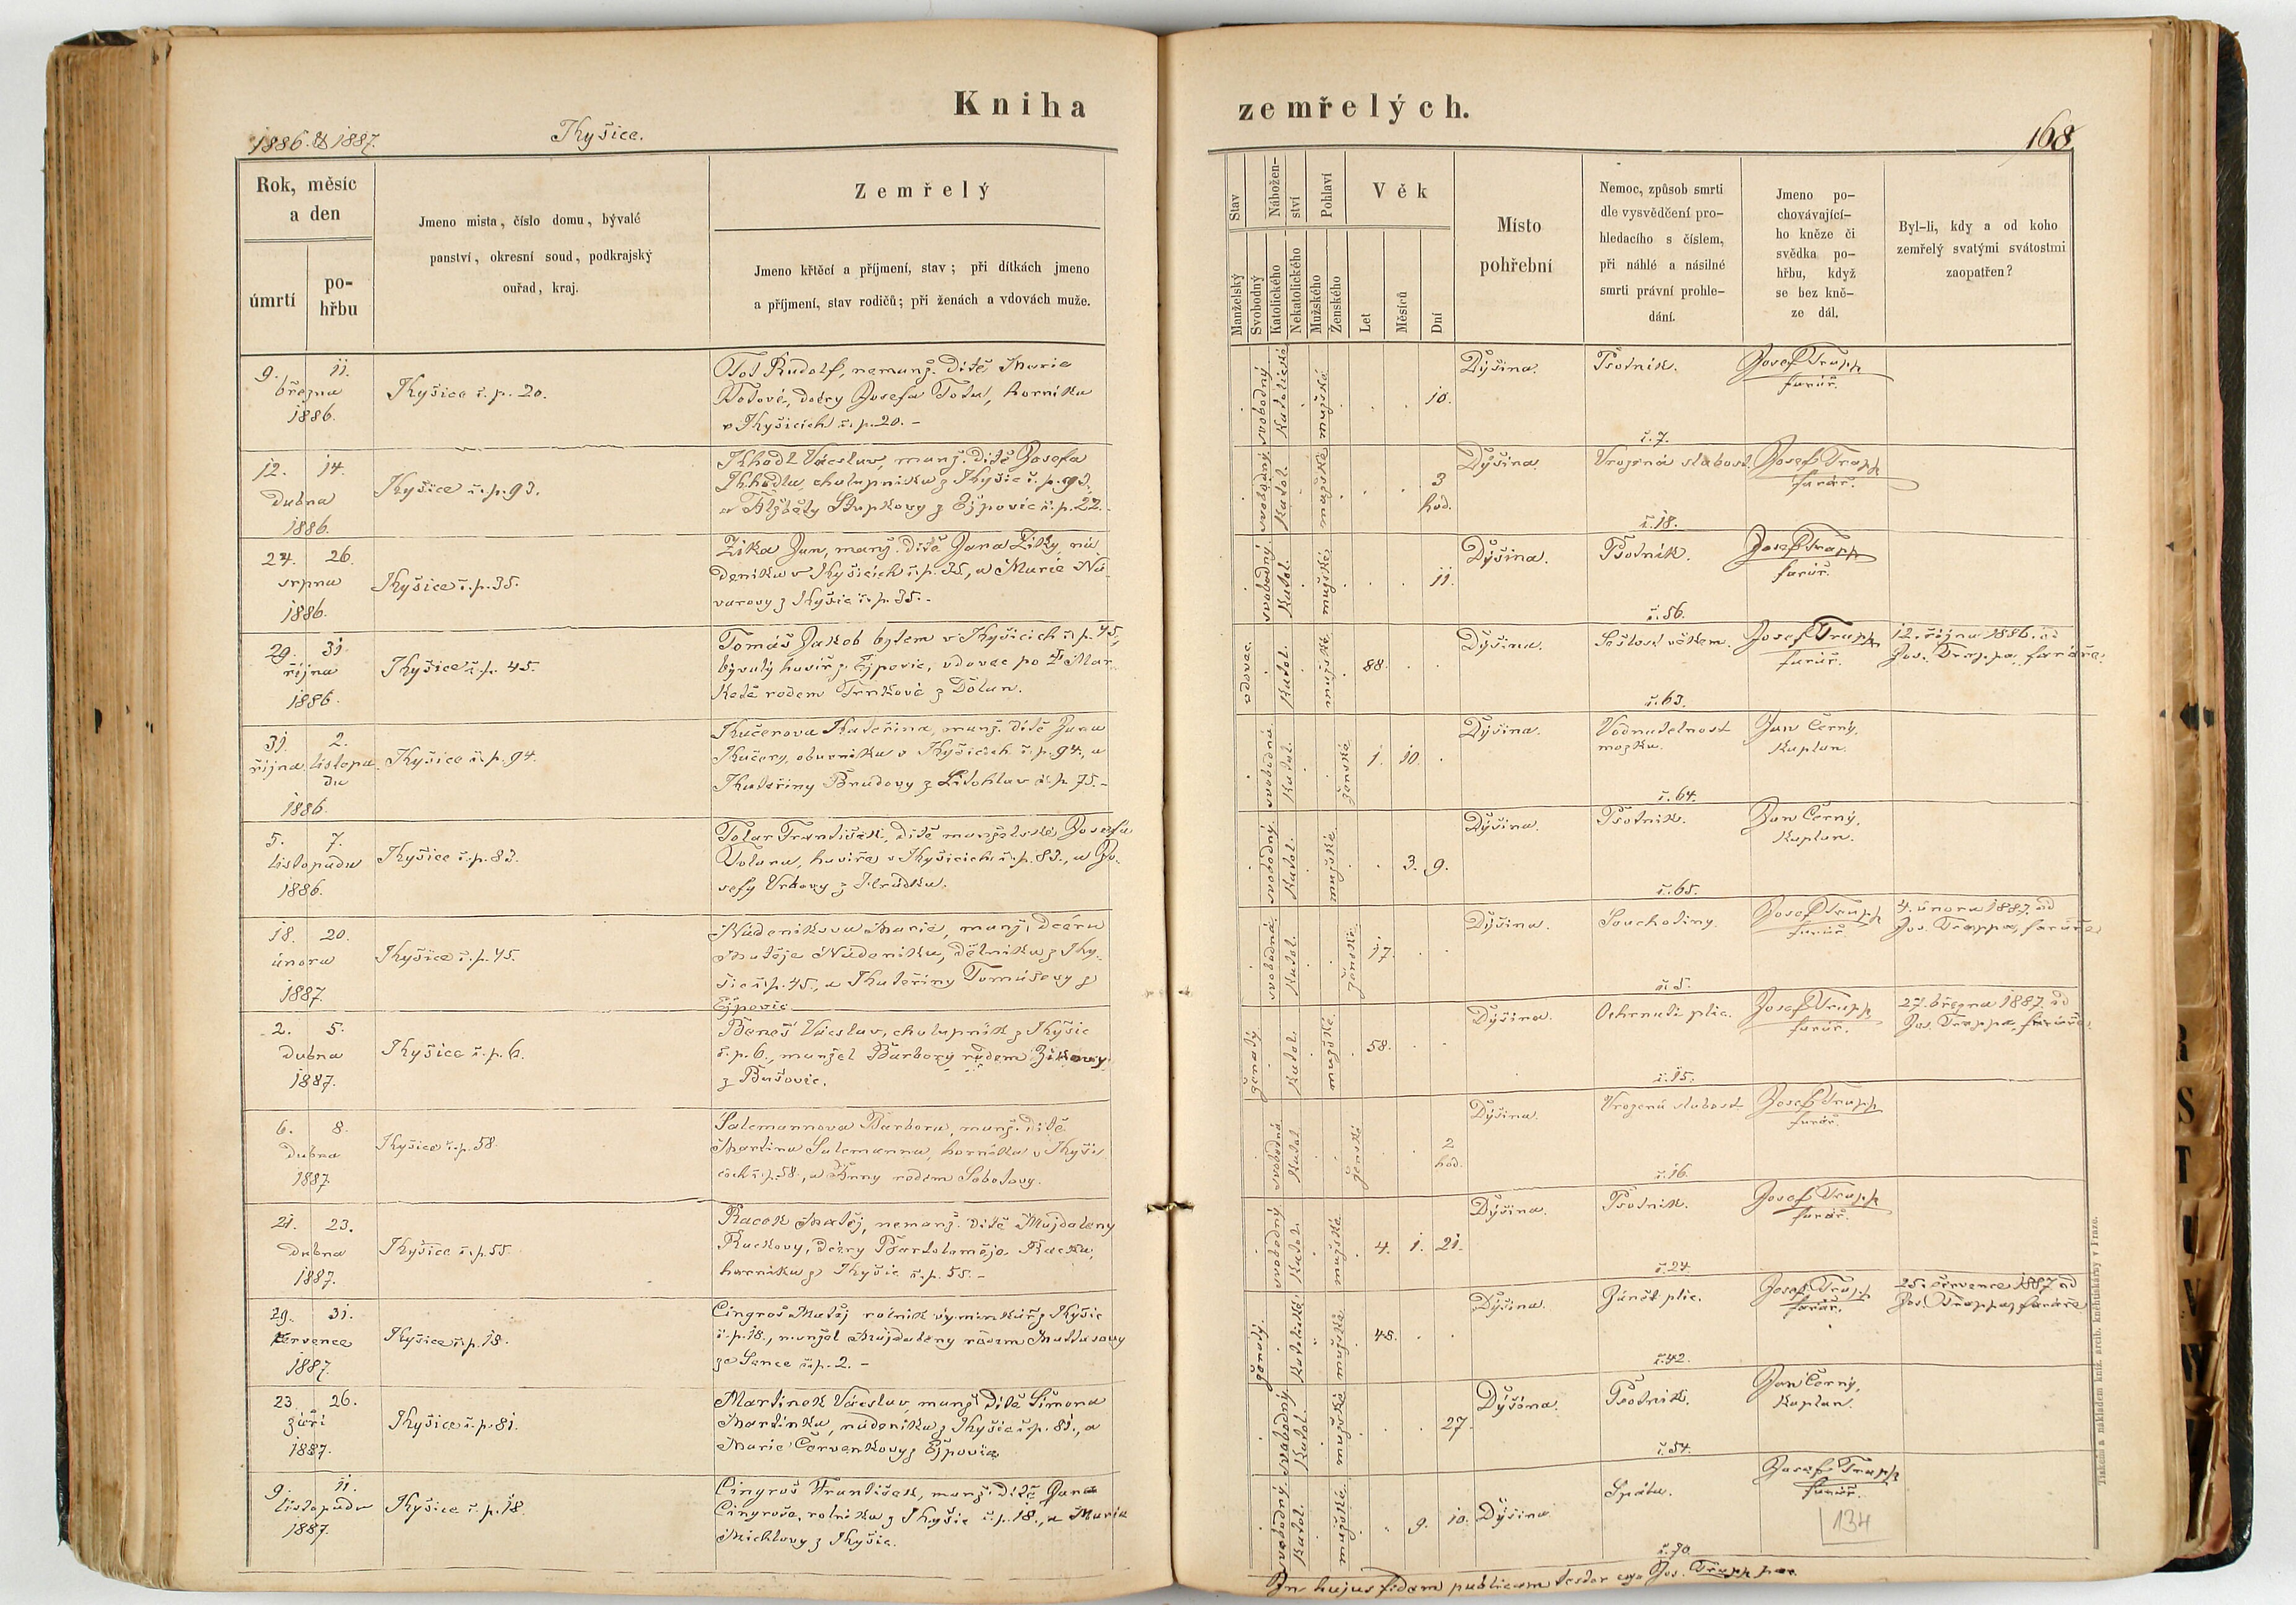 Kniha
zemřelých.
1886. & 1887.
Kyšice.
168
Rok, měsíc
a den
úmrtí
po-
hřbu
Jmeno mista, číslo domu, bývalé
panství, okresní soud, podkrajský
ouřad, kraj.
Zemřelý
Jmeno křtěcí a příjmení, stav; při dítkách jmeno
a příjmení, stav rodičů; při ženách a vdovách muže.
Stav
Manželský
Svobodný
Nábožen-
ství
Katolického
Nekatolického
Pohlaví
Mužského
Ženského
Věk
Let
Měsíců
Dní
Místo
pohřební
Nemoc, způsob smrti
dle vysvědčení pro-
hledacího s číslem,
při náhlé a násilné
smrti právní prohle-
dání.
Jmeno po-
chovávající-
ho kněze či
svědka po-
hřbu, když
se bez kně-
ze dál.
Byl-li, kdy a od koho
zemřelý svatými svátostmi
zaopatřen?
9. 11.
března
1886.
Kyšice č. p. 20.
Tot Rudolf, nemanž. dítě Marie
Totové, dcery Josefa Tota, horníka
v Kyšicích č. p. 20. –
svobodný
Katolické
mužské
10.
Dýšina.
Psotník.
č. 7.
Josef Trapp
farář.
12. 14.
dubna
1886.
Kyšice č. p. 93.
Khodl Václav, manž. dítě Josefa
Khodla, chalupníka z Kyšic č. p. 93.,
a Alžběty Stupkovy z Ejpovic č. p. 22. -
svobodný
Katol.
mužské
3
hod.
Dýšina.
Vrozená slabost.
č. 18.
Josef Trapp
farář.
24. 26.
srpna
1886.
Kyšice č. p. 35.
Zika Jan, manž. dítě Jana Ziky, ná
deníka v Kyšicích č. p. 35., a Marie Ná-
varovy z Kyšic č. p. 35. -
svobodný
Katol.
mužské
11.
Dýšina.
Psotník.
č. 56.
Josef Trapp
farář.
29. 31.
října
1886.
Kyšice č. p. 45.
Tomáš Jakob bytem v Kyšicích č. p. 45.,
bývalý havíř z Ejpovic, vdovec po † Mar
ketě rodem Trnkové z Dolan.
vdovec.
Katol.
mužské
88.
Dýšina.
Sešlost věkem.
č. 63.
Josef Trapp
farář.
12. října 1886. od
Jos. Trappa, faráře.
31. 2.
října listopa
du
1886.
Kyšice č. p. 94.
Kučerova Kateřina, manž. dítě Jana
Kučery, oburníka v Kyšicích č. p. 94., a
Kateřiny Brudovy z Litohlav č. p. 75. -
svobodná.
Katol.
ženské
1. 10.
Dýšina.
Vodnatelnost
mozku.
č. 64.
Jan Černý,
kaplan.
5. 7.
listopadu
1886.
Kyšice č. p. 83.
Tolar František, dítě manželské Josefa
Tolara, havíře v Kyšicích č. p. 83., a Jo-
sefy Vrbovy z Hrádku.
svobodný.
Katol.
mužské
3. 9.
Dýšina.
Psotník.
č. 65.
Jan Černý,
kaplan.
18. 20.
února
1887.
Kyšice č. p. 45.
Nádeníkova Marie, manž. dcera
Matěje Nádeníka, dělníka z Ky-
šic č. p. 45., a Kateřiny Tomášovy z
Ejpovic
svobodná.
Katol.
ženské
17.
Dýšina.
Souchotiny.
č. 5.
Josef Trapp
farář.
4. února 1887. od
Jos. Trappa, faráře
2. 5.
dubna
1887.
Kyšice č. p. 6.
Beneš Václav, chalupník z Kyšic
č. p. 6., manžel Barbory rodem Zikovy
z Bušovic.
ženatý
Katol.
mužské
58.
Dýšina.
Ochrnutí plic.
č. 15.
Josef Trapp
farář.
27. března 1887. od
Jos. Trappa, faráře.
6. 8.
dubna
1887.
Kyšice č. p. 58.
Salcmannova Barbora, manž. dítě
Martina Salcmanna, horníka v Kyši-
cích č. p. 58., a Anny rodem Sobotovy.
svobodná
Katol.
ženské
2
hod.
Dýšina.
Vrozená slabost
č. 16.
Josef Trapp
farář.
21. 23.
dubna
1887.
Kyšice č. p. 55.
Racek Matěj, nemanž. dítě Majdaleny
Rackovy, dcery Bartoloměje Racka,
horníka z Kyšic č. p. 55. -
svobodný
Katol.
mužské
4. 1. 21.
Dýšina.
Psotník.
č. 24.
Josef Trapp
farář.
29. 31.
července
1887.
Kyšice č. p. 18.
Cingroš Matěj rolník výminkář z Kyšic
č. p. 18., manžel Majdaleny rodem Mattasovy
ze Sence č. p. 2. -
ženatý.
Katolické
mužské
48.
Dýšina.
Zánět plic.
č. 42.
Josef Trapp
farář.
25. července 1887 od
Jos. Trappa, faráře
23. 26.
září
1887.
Kyšice č. p. 81.
Martínek Václav, manž. dítě Šimona
Martínka, nádeníka z Kyšic č. p. 81., a
Marie Červenkovy z Ejpovic
svobodný
Katol.
mužské
27.
Dýšina.
Psotník.
č. 54.
Jan Černý,
kaplan.
9. 11.
listopadu
1887.
Kyšice č. p. 18.
Cingroš František, manž. dítě Jana
Cingroše, rolníka z Kyšic č. p. 18., a Marie
Michlovy z Kyšic.
svobodný
Katol.
mužské
9. 10.
Dýšina
Spála.
č. 70.
Josef Trapp
farář.
134
In hujus fidem publicam testor ego Jos. Trapp par.
Tiskem a nákladem kníž. arcib. knihtiskárny v Praze.
S
T
U
V
W